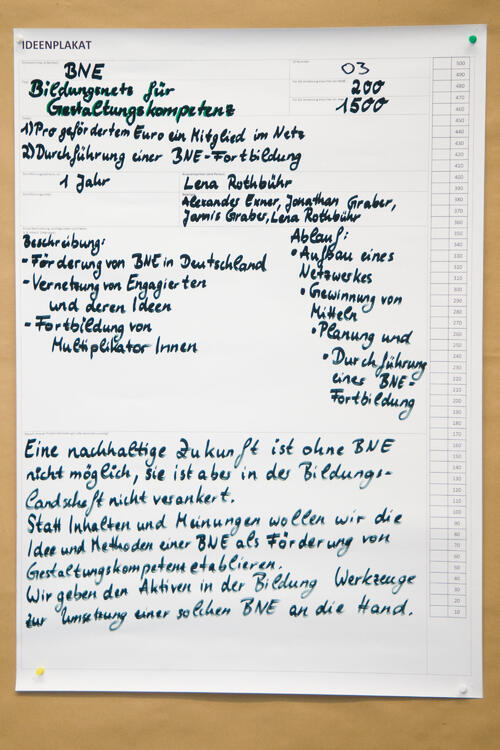 IDEENPLAKAT
BNE
03
Bildungsnetz für
200
Gestaltungskompetenz
1500
1) Pro gefördertem Euro ein Mitglied im Netz
2) Durchführung einer BNE-Fortbildung
1 Jahr
Lena Rothbühr
Alexander Exner, Jonathan Graber,
Jarnis Graber, Lena Rothbühr
Beschreibung:
- Förderung von BNE in Deutschland
- Vernetzung von Engagierten
und deren Ideen
- Fortbildung von
Multiplikator Innen
Ablauf:
• Aufbau eines
Netzwerkes
• Gewinnung von
Mitteln
• Planung und
• Durchführung
einer BNE-
Fortbildung
Eine nachhaltige Zukunft ist ohne BNE
nicht möglich, sie ist aber in der Bildungs-
landschaft nicht verankert.
Statt Inhalten und Meinungen wollen wir die
Idee und Methoden einer BNE als Förderung von
Gestaltungskompetenz etablieren.
Wir geben den Aktiven in der Bildung Werkzeuge
zur Umsetzung einer solchen BNE an die Hand.
500
490
480
470
460
450
440
430
420
410
400
390
380
370
360
350
340
330
320
310
300
290
280
270
260
250
240
230
220
210
200
190
180
170
160
150
140
130
120
110
100
90
80
70
60
50
40
30
20
10